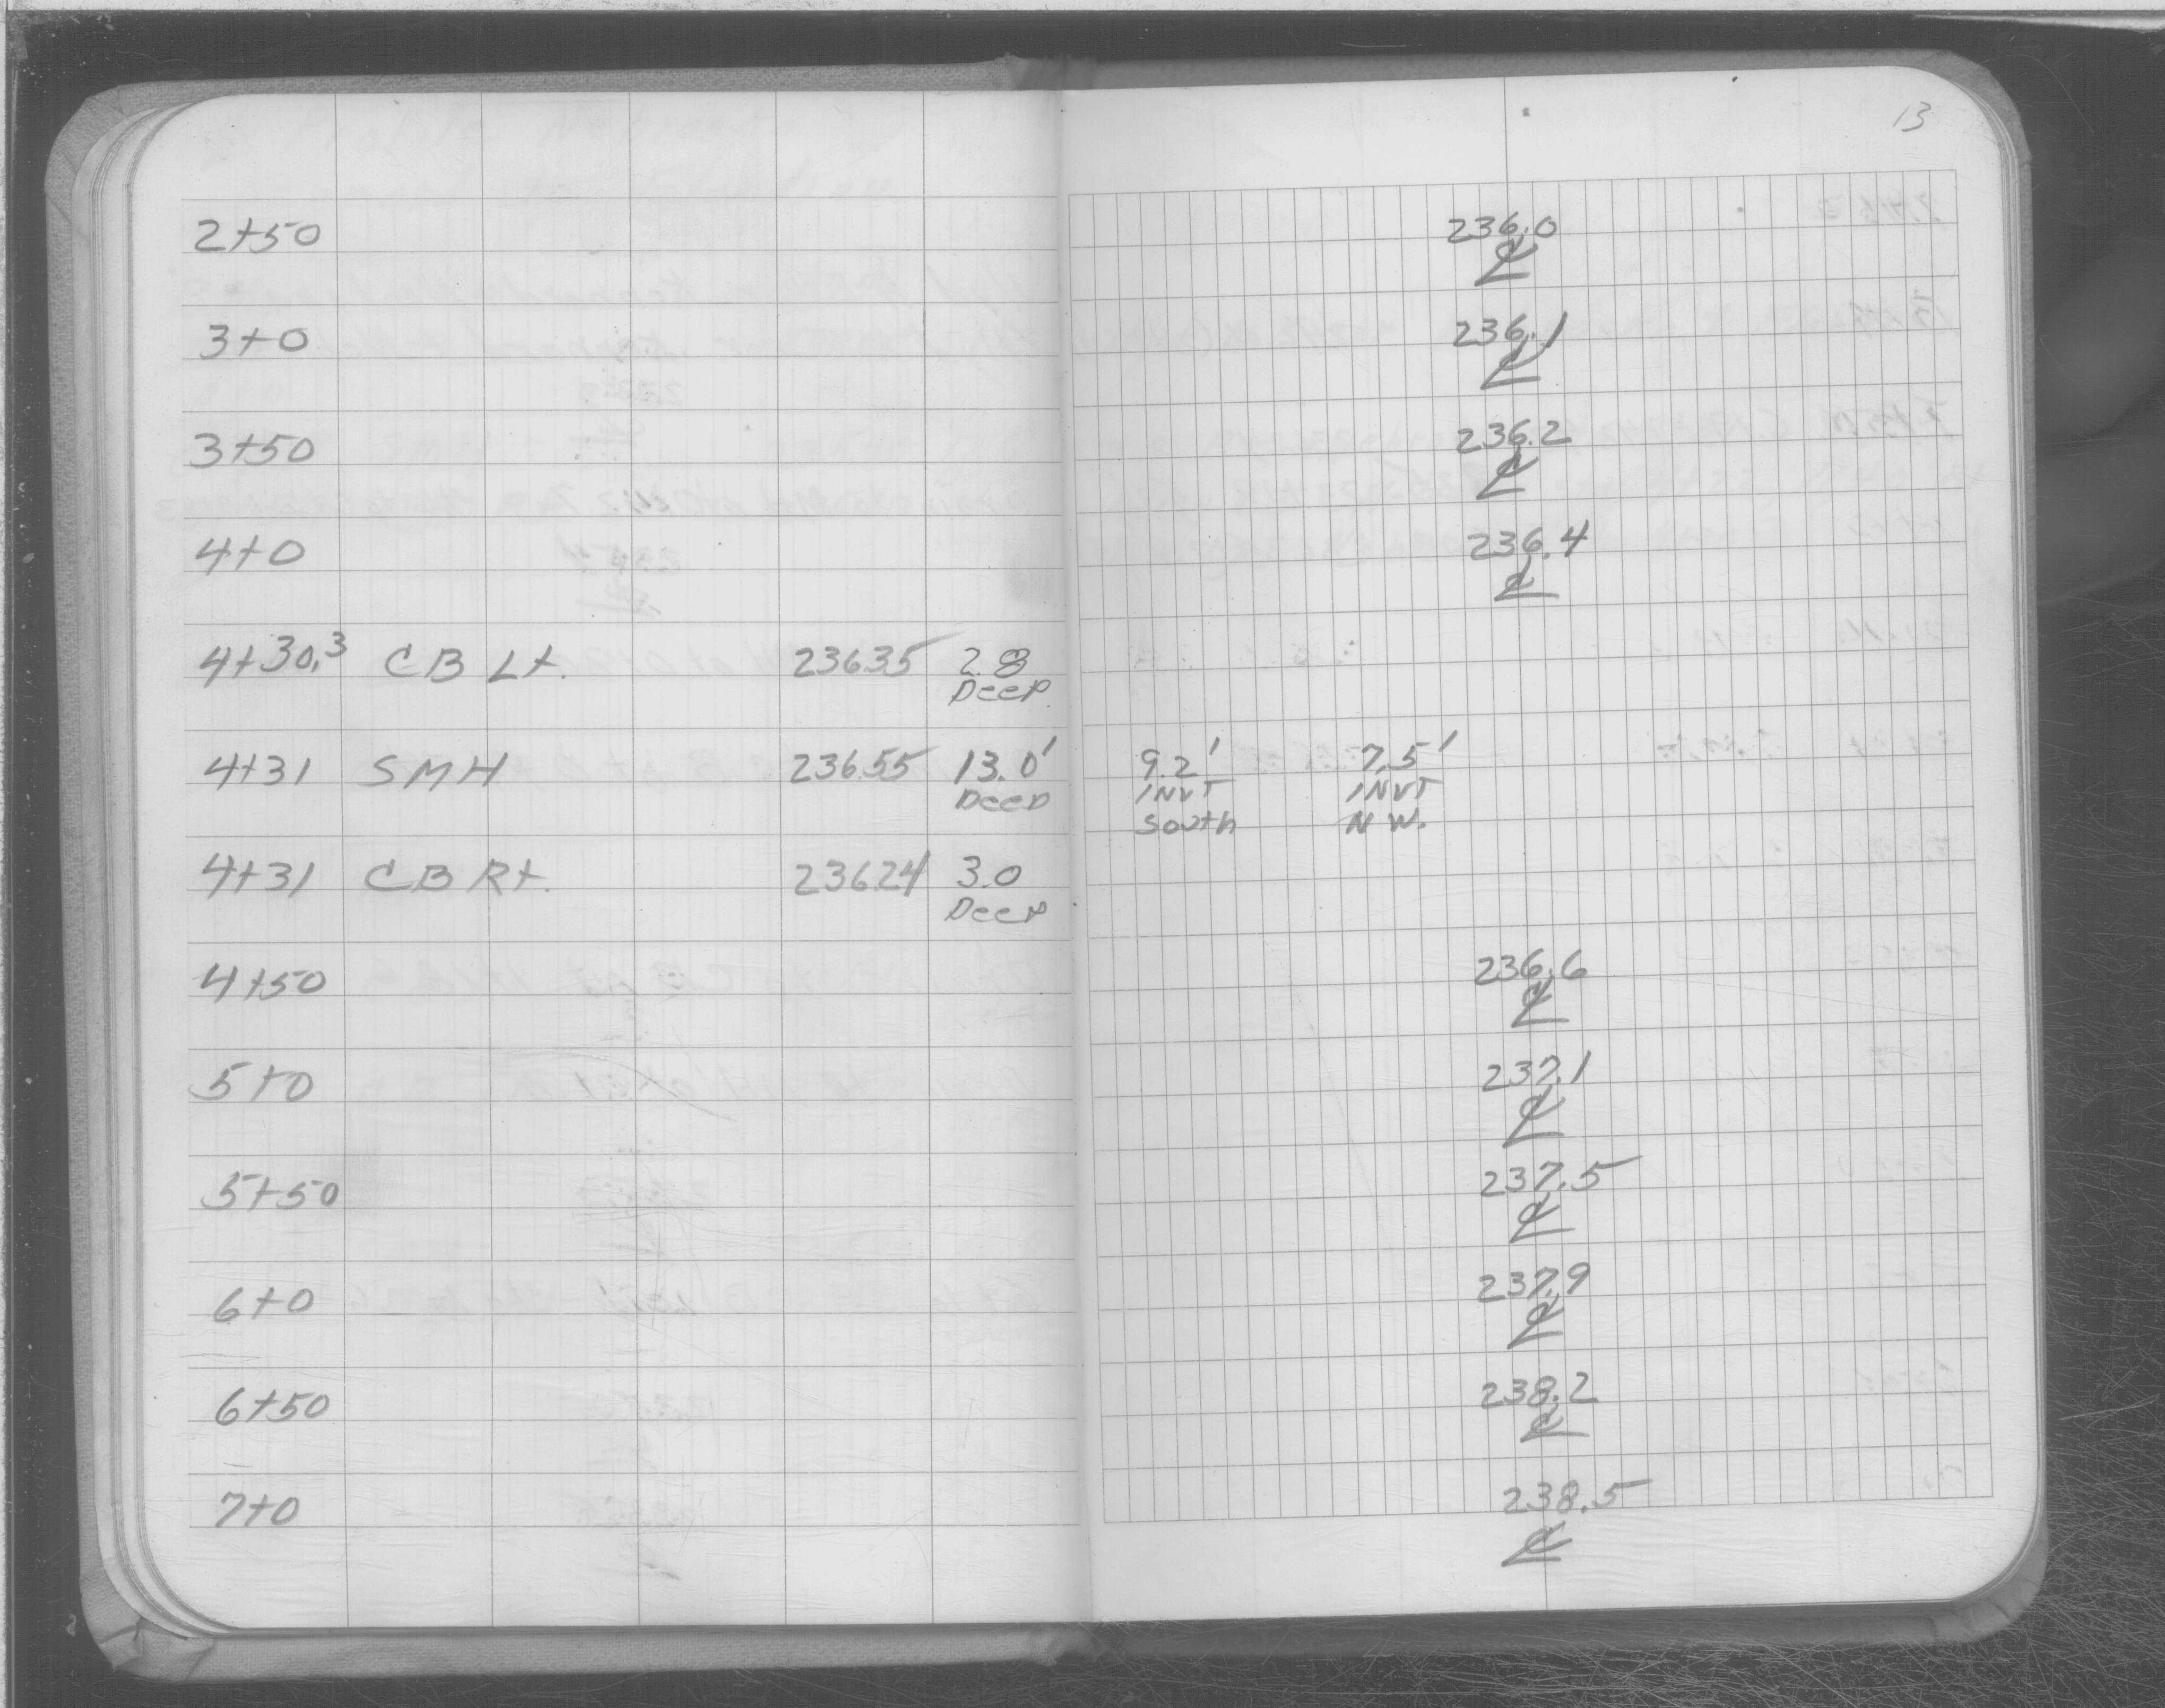 13
2+50 236.0
℄
3+0 236.1
℄
3+50 236.2
℄
4+0 236.4
℄
4+30.3 CB Lt. 236.35 2.8
Deep
4+31 SMH 236.55 13.0' 9.2' 7.5'
Deep INVT INVT
South N W.
4+31 CB Rt. 236.24 3.0
Deep
4+50 236.6
℄
5+0 237.1
℄
5+50 237.5
℄
6+0 237.9
℄
6+50 238.2
℄
7+0 238.5
℄